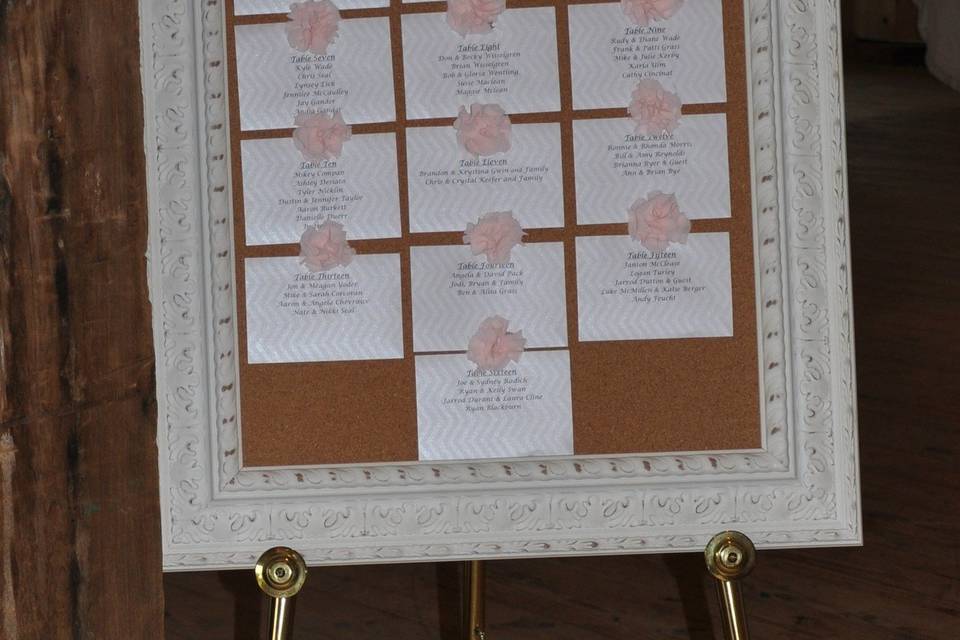 Table Seven
Kyle Wade
Chris Seal
Lynsey Lick
Jennifer McCaulley
Jay Gander
Andia Gander
Table Eight
Don & Becky Wissolgren
Brian Wissolgren
Bob & Gloria Wentling
Susie Maclean
Maggie Mclean
Table Nine
Rudy & Diane Wade
Frank & Patti Grass
Mike & Julie Kerby
Karla Ulm
Cathy Cincinat
Table Ten
Mikey Compan
Ashley Desiato
Tyler Nicklin
Dustin & Jennifer Taylor
Aaron Burkett
Danielle Duerr
Table Eleven
Brandon & Krystina Gwin and Family
Chris & Crystal Keifer and Family
Table Twelve
Ronnie & Rhonda Morris
Bill & Amy Reynolds
Brianna Byer & Guest
Ann & Brian Bye
Table Thirteen
Jon & Meagan Yoder
Mike & Sarah Corcoran
Aaron & Angela Chevraux
Nate & Nikki Seal
Table Fourteen
Angela & David Pack
Jodi, Bryan & Family
Ben & Alita Grass
Table Fifteen
Janson McCleast
Logan Turley
Jarrod Dutton & Guest
Luke McMillen & Katie Berger
Andy Feucht
Table Sixteen
Joe & Sydney Radich
Ryan & Kelly Swan
Jarrod Durant & Laura Cline
Ryan Blackburn